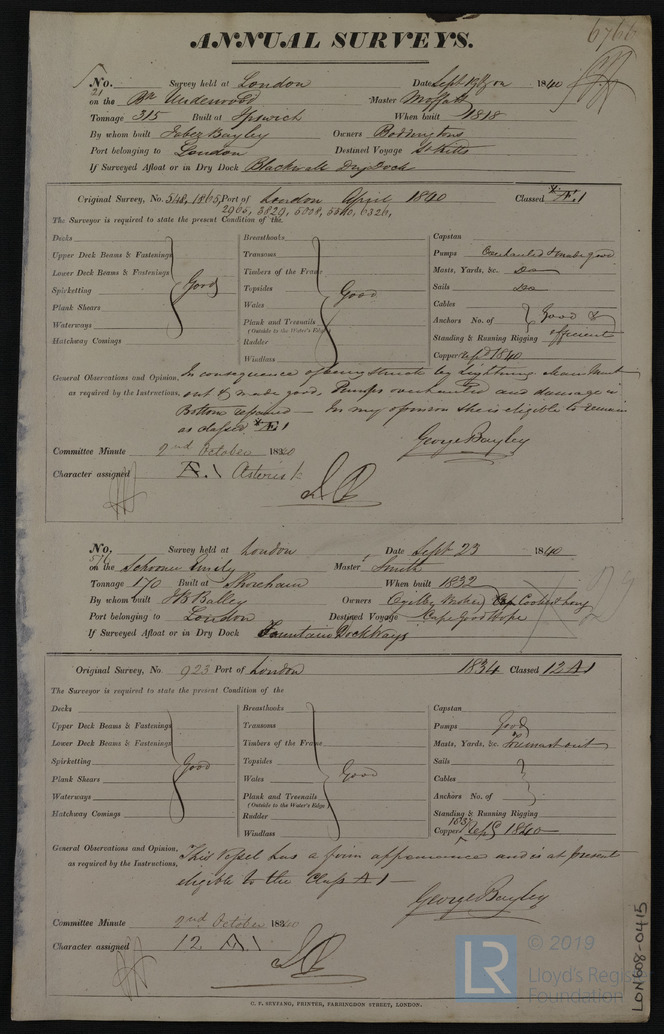 6766
ANNUAL SURVEYS.
No. 21 Survey held at London Date Sept 1840
on the Bn Underwood Master Moffatt
Tonnage 315 Built at Ipswich When built 1818
By whom built Jabez Bayley Owners Boddingtons
Port belonging to London Destined Voyage St Kitts
If Surveyed Afloat or in Dry Dock Blackwall Dry Dock
Original Survey, No. 548, 1865, Port of London April 1840 Classed *Æ.1
2905, 3829, 5008, 6326,
The Surveyor is required to state the present Condition of the
Decks
Upper Deck Beams & Fastenings
Lower Deck Beams & Fastenings
Spirketting
Plank Shears
Waterways
Hatchway Comings
Good
Breasthooks
Transoms
Timbers of the Frame
Topsides
Wales
Plank and Treenails
(Outside to the Water's Edge)
Rudder
Windlass
Good
Capstan
Pumps Overhauled & made good
Masts, Yards, &c. Do
Sails Do
Cables
Anchors No. of
Standing & Running Rigging
Good & efficient
Copper 1840
General Observations and Opinion, In consequence of being struck by lightning Main Mast
as required by the Instructions, out & made good, Pumps overhauled and damage in
Bottom repaired — In my opinion she is eligible to remain
as classed *Æ1
George Bayley
Committee Minute 2nd October 1840
Character assigned Æ.1 Asterisk
No. 576 Survey held at London Date Sept 23 1840
on the Schooner Emily Master Smith
Tonnage 170 Built at Shoreham When built 1832
By whom built JB Balley Owners Ogilby
Port belonging to London Destined Voyage Cape Good Hope
If Surveyed Afloat or in Dry Dock Fountain Dock Ways
Original Survey, No 923 Port of London 1834 Classed 12 A1
The Surveyor is required to state the present Condition of the
Decks
Upper Deck Beams & Fastenings
Lower Deck Beams & Fastenings
Spirketting
Plank Shears
Waterways
Hatchway Comings
Good
Breasthooks
Transoms
Timbers of the Frame
Topsides
Wales
Plank and Treenails
(Outside to the Water's Edge)
Rudder
Windlass
Good
Capstan
Pumps Good
Masts, Yards, &c. Foremast out
Sails
Cables
Anchors No. of
Standing & Running Rigging
Copper 1837 1840
General Observations and Opinion, This Vessel has a firm appearance and is at present
as required by the Instructions, eligible to the Class A1
George Bayley
Committee Minute 2nd October 1840
Character assigned 12 A1
C. F. SEYFANG, PRINTER, FARRINGDON STREET, LONDON.
LR
© 2019
Lloyd's Register
Foundation
LON608-0415